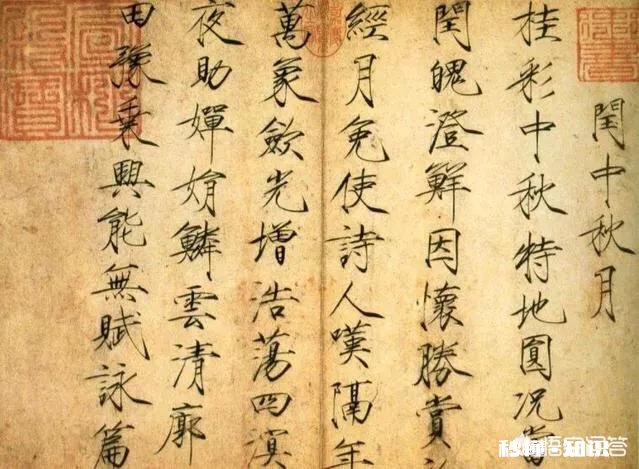 閏中秋月
桂彩中秋特地圓况當
閏魄澄鮮因懷勝賞
經月免使詩人嘆隔年
萬象斂光增浩蕩四溟
夜助嬋娟鱗雲清廓
田豫乗興能無賦詠篇
悟空问答
知识